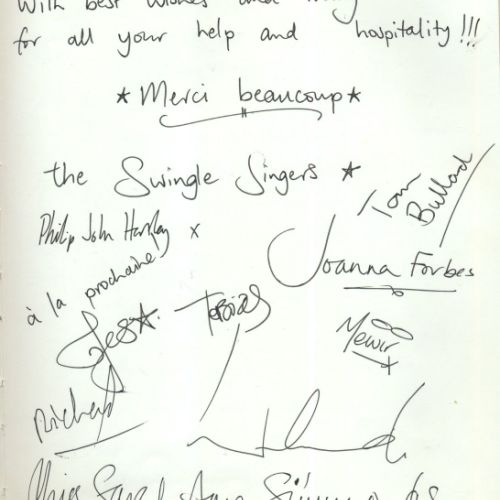 with best wishes and
for all your help and hospitality!!!
★ Merci beaucoup ★
the Swingle Singers ★
Tom Bullard
Philip John Hartley x
Joanna Forbes
à la prochaine
Tobias
Richard